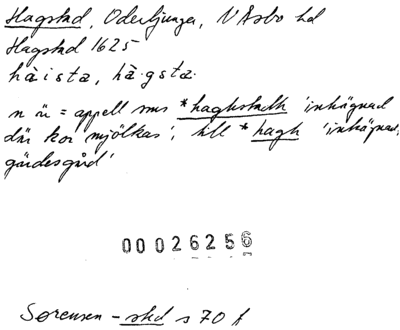 Hagstad, Oderljunga, N Åsbo hd
Hagstad 1625
hàista, hà·gsta·
n ä = appell sms *haghstadh 'inhägnad
där kor mjölkas', till *hagh 'inhägnad,
gärdesgård'
00026256
Sørensen - std s 70 f